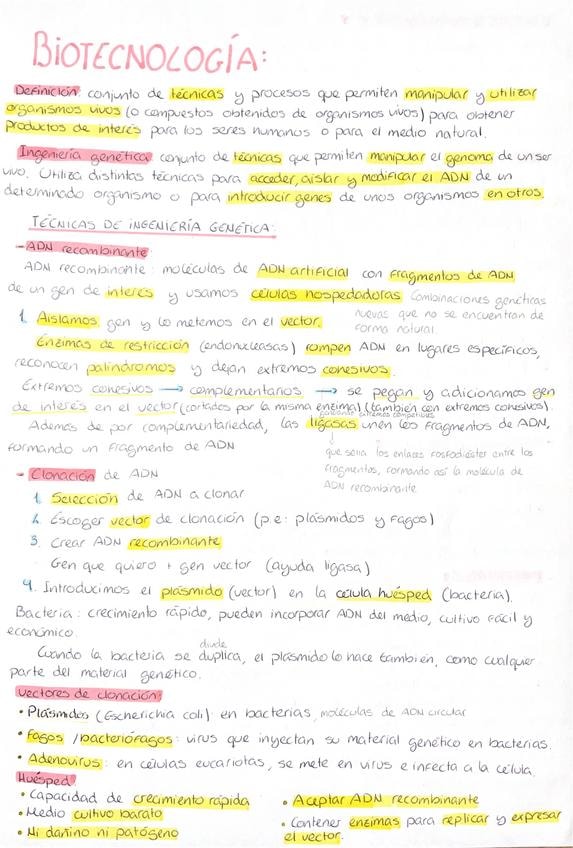 BIOTECNOLOGÍA:
Definición: conjunto de técnicas y procesos que permiten manipular y utilizar
organismos vivos (o compuestos obtenidos de organismos vivos) para obtener
productos de interés para los seres humanos o para el medio natural.
Ingeniería genética: conjunto de técnicas que permiten manipular el genoma de un ser
vivo. Utiliza distintas técnicas para acceder, aislar y modificar el ADN de un
determinado organismo o para introducir genes de unos organismos en otros.
TÉCNICAS DE INGENIERÍA GENÉTICA:
- ADN recombinante:
ADN recombinante: moléculas de ADN artificial con fragmentos de ADN
de un gen de interés y usamos células hospedadoras Combinaciones genéticas
nuevas que no se encuentran de
forma natural
1. Aislamos gen y lo metemos en el vector.
Enzimas de restricción (endonucleasas) rompen ADN en lugares específicos,
reconocen palíndromos y dejan extremos cohesivos.
Extremos cohesivos → complementarios → se pegan y adicionamos gen
de interés en el vector (cortados por la misma enzima) (también con extremos cohesivos).
Además de por complementariedad, las ligasas unen los fragmentos de ADN,
formando un fragmento de ADN
que sella los enlaces fosfodiéster entre los
fragmentos, formando así la molécula de
ADN recombinante
- Clonación de ADN
1. Selección de ADN a clonar
2. Escoger vector de clonación (p.e: plásmidos y fagos)
3. Crear ADN recombinante
Gen que quiero + gen vector (ayuda ligasa)
4. Introducimos el plásmido (vector) en la célula huésped (bacteria).
Bacteria: crecimiento rápido, pueden incorporar ADN del medio, cultivo fácil y
económico.
divide
Cuando la bacteria se duplica, el plásmido lo hace también, como cualquier
parte del material genético.
Vectores de clonación:
• Plásmidos (Escherichia coli): en bacterias, moléculas de ADN circular
• Fagos / bacteriófagos: virus que inyectan su material genético en bacterias.
• Adenovirus: en células eucariotas, se mete en virus e infecta a la célula.
Huésped:
• Capacidad de crecimiento rápida
• Medio cultivo barato
• Ni dañino ni patógeno
• Aceptar ADN recombinante
• Contener enzimas para replicar y expresar
el vector.